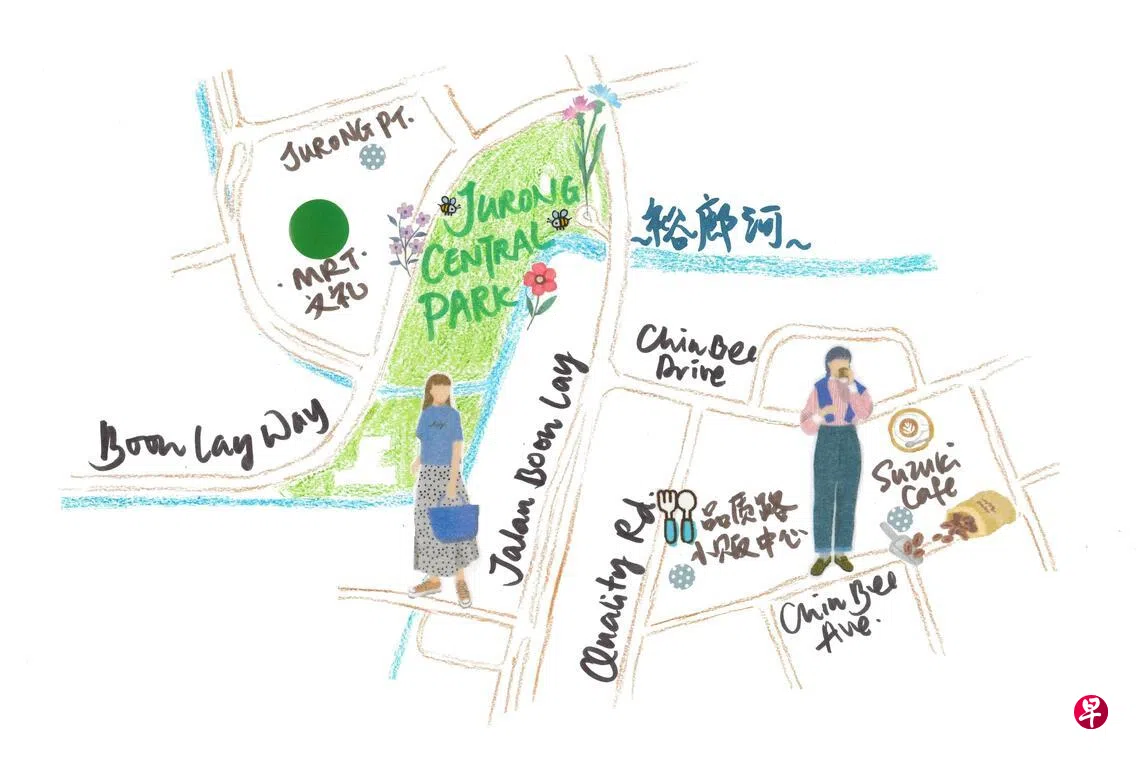 JURONG PT.
MRT.
文礼
JURONG
CENTRAL
PARK
~裕廊河~
Boon Lay Way
Jalan Boon Lay
Chin Bee
Drive
Quality Rd.
品质路
小贩中心
Suzuki
Cafe
Chin Bee
Ave.
早